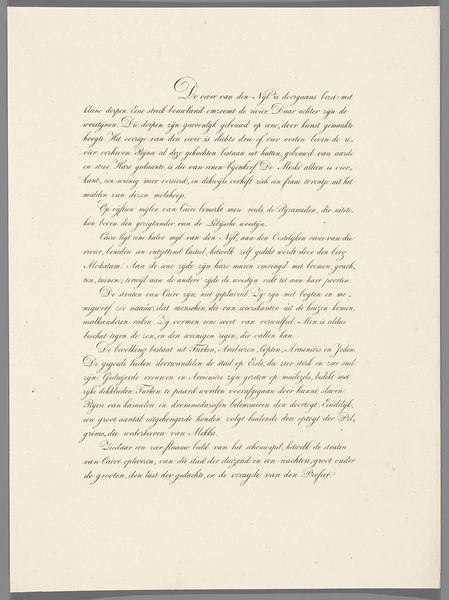 De oever van den Nyl is doorgaans bezet met
kleine dorpen. Eene streek bouwland omzoomt de rivier. Daar achter zijn de
woestijnen. Die dorpen zijn gewoonlijk gebouwd op eene, door kunst gemaakte
hoogte. Het overige van den oever is slechts drie of vier voeten boven de ri-
vier verheven. Bijna al deze gehuchten bestaan uit hutten, gebouwd van aarde
en stroo. Hare gedaante is die van eenen bijenkorf. De Moské alleen is vier-
kant, een weinig meer versierd, en dikwijls verheft zich een fraai torentje uit het
midden van dezen molshoop.
Op vijftien mijlen van Caïro bemerkt men reeds de Pyramiden, die uitste-
ken boven den gezigteinder van de Libysche woestijn.
Caïro ligt eene halve mijl van den Nyl, aan den Oostelijken oever van die
rivier, beneden een ontzettend kasteel, hetwelk zelf gedekt wordt door den berg
Mokatam. Aan de eene zijde zijn hare muren omringd met boomen, grach-
ten, tuinen; terwijl aan de andere zijde de woestijn reikt tot aan hare poorten.
De straten van Caïro zijn niet geplaveid. Zij zijn met bogten en me-
nigwerf zoo naauw, dat menschen, die van weerskanten uit de huizen komen,
malkanderen raken. Zij vormen eene soort van verwulfsel. Men is aldus
beschut tegen de zon, en den weinigen regen, die vallen kan.
De bevolking bestaat uit Turken, Arabieren, Copten, Armeniërs en Joden.
De gegoede lieden doorwandelen de stad op Ezels, die zeer sterk en zeer snel
zijn. Gesluijerde vrouwen en Armeniërs zijn gezeten op muilezels, bedekt met
rijke dekkleeden. Turken te paard worden voorafgegaan door hunne slaven.
Rijen van kameelen en drommedarissen belemmeren den doortogt. Eindelijk,
een groot aantal uitgehongerde honden volgt huilende den optogt der Pel-
grims, die wederkeeren van Mekka.
Ziedaar een zeer flaauw beeld van het schouwspel, hetwelk de straten
van Caïro opleveren, van die stad der duizend en een nachten, groot onder
de grooten, den lust der gedachte, en de vreugde van den Profeet.